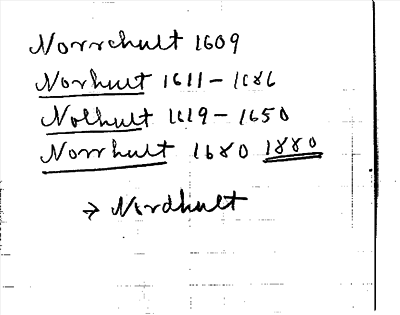 Norrehult 1609
Norhult 1611 - 1686
Nolhult 1619 - 1650
Norrhult 1680 1880
→ Nordhult